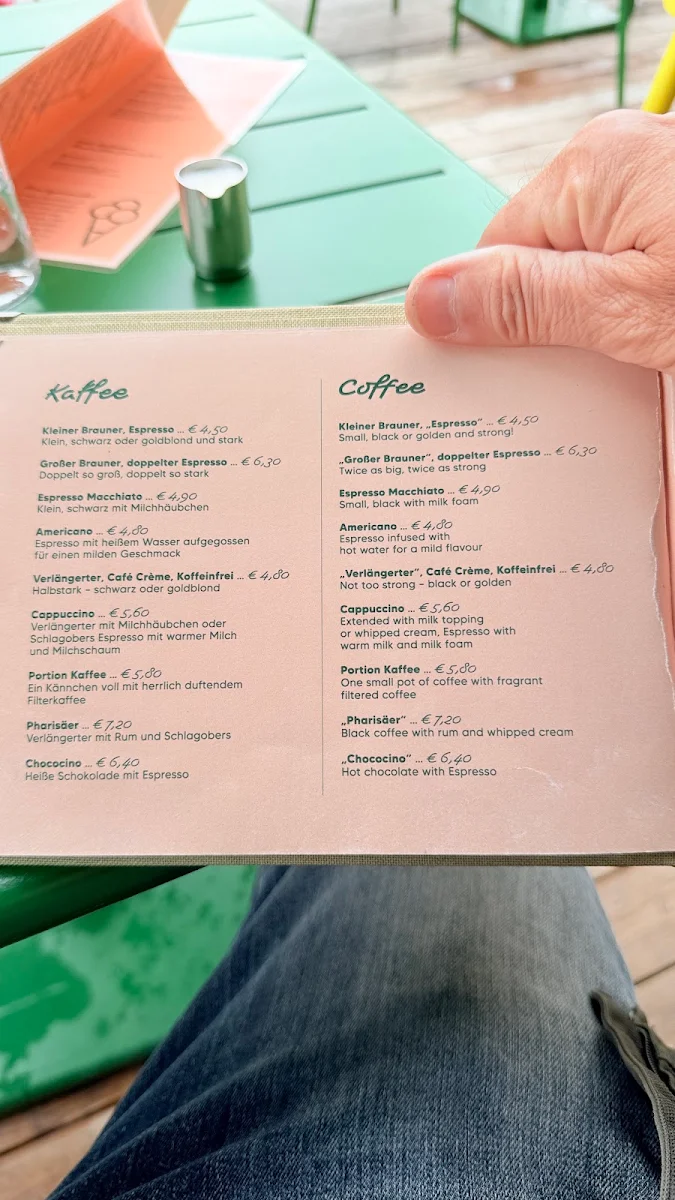 Kaffee
Kleiner Brauner, Espresso ... € 4,50
Klein, schwarz oder goldblond und stark
Großer Brauner, doppelter Espresso ... € 6,30
Doppelt so groß, doppelt so stark
Espresso Macchiato ... € 4,90
Klein, schwarz mit Milchhäubchen
Americano ... € 4,80
Espresso mit heißem Wasser aufgegossen
für einen milden Geschmack
Verlängerter, Café Crème, Koffeinfrei ... € 4,80
Halbstark – schwarz oder goldblond
Cappuccino ... € 5,60
Verlängerter mit Milchhäubchen oder
Schlagobers Espresso mit warmer Milch
und Milchschaum
Portion Kaffee ... € 5,80
Ein Kännchen voll mit herrlich duftendem
Filterkaffee
Pharisäer ... € 7,20
Verlängerter mit Rum und Schlagobers
Chococino ... € 6,40
Heiße Schokolade mit Espresso
Coffee
Kleiner Brauner, „Espresso“ ... € 4,50
Small, black or golden and strong!
„Großer Brauner“, doppelter Espresso ... € 6,30
Twice as big, twice as strong
Espresso Macchiato ... € 4,90
Small, black with milk foam
Americano ... € 4,80
Espresso infused with
hot water for a mild flavour
„Verlängerter“, Café Crème, Koffeinfrei ... € 4,80
Not too strong – black or golden
Cappuccino ... € 5,60
Extended with milk topping
or whipped cream, Espresso with
warm milk and milk foam
Portion Kaffee ... € 5,80
One small pot of coffee with fragrant
filtered coffee
„Pharisäer“ ... € 7,20
Black coffee with rum and whipped cream
„Chococino“ ... € 6,40
Hot chocolate with Espresso